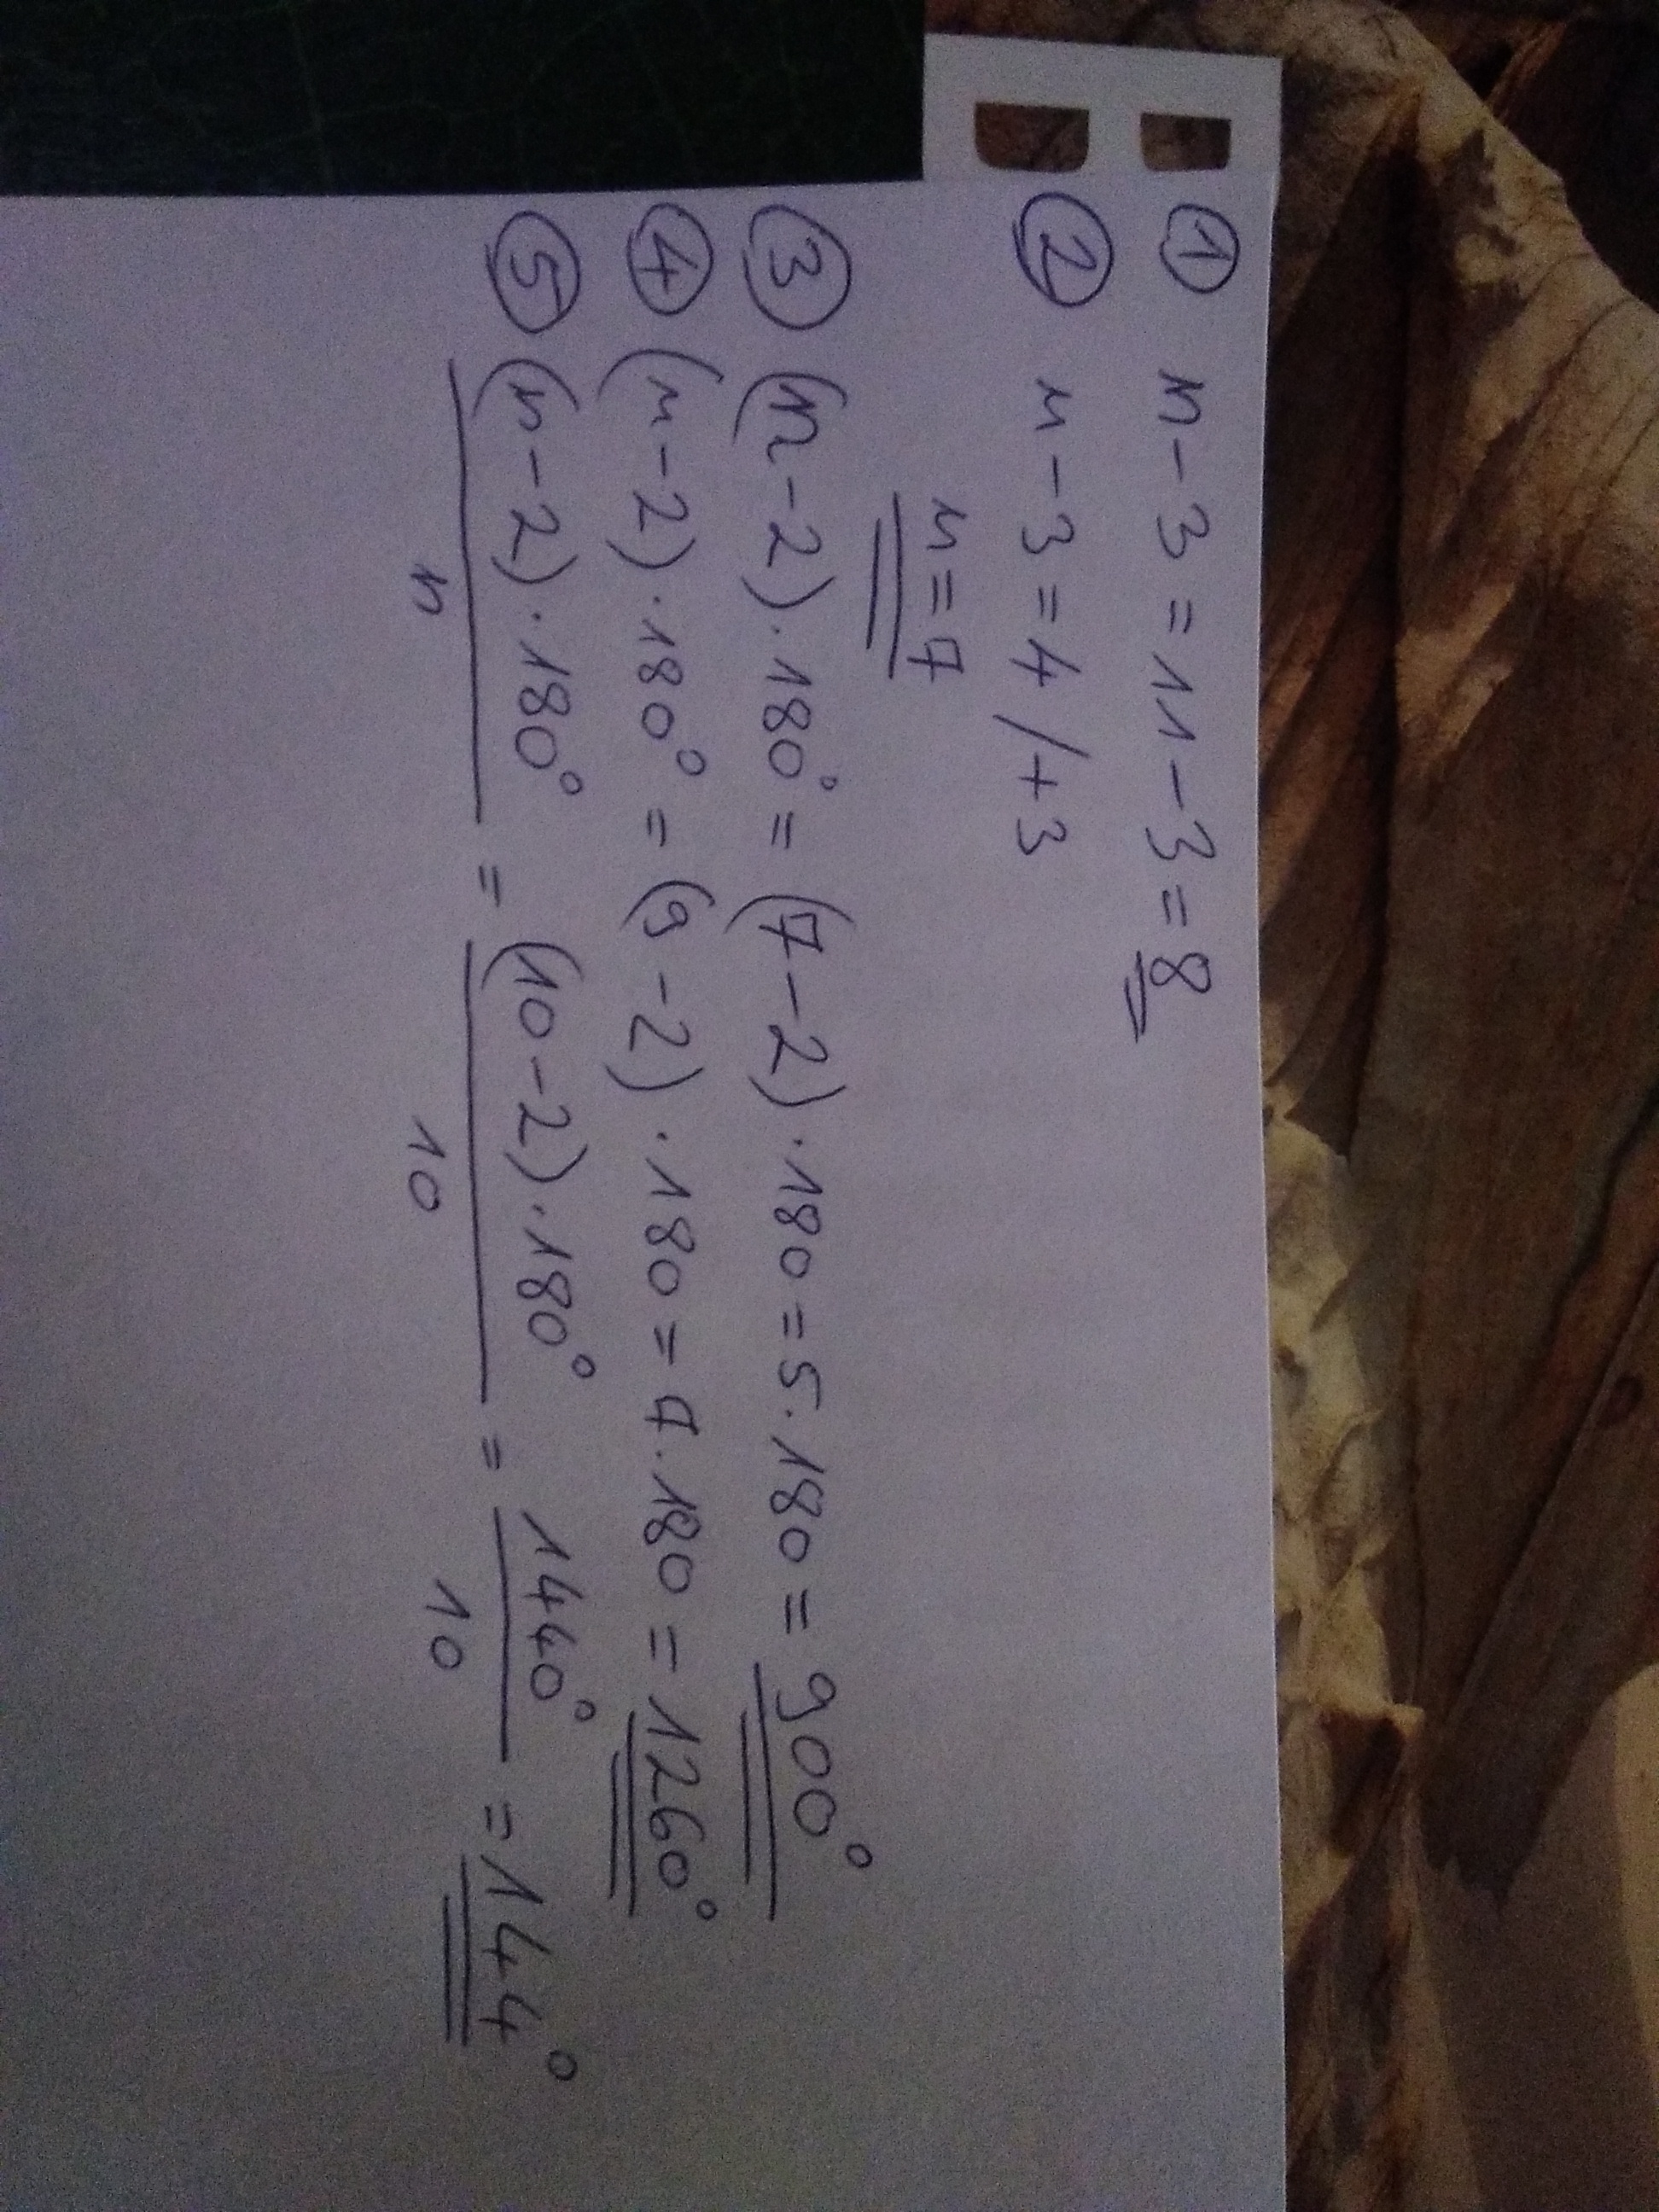 ① n-3=11-3=8
② n-3=4 /+3
n=7
③ (n-2)·180°=(7-2)·180=5·180=900°
④ (n-2)·180°=(9-2)·180=7·180=1260°
⑤ (n-2)·180° = (10-2)·180° = 1440° = 144°
n 10 10